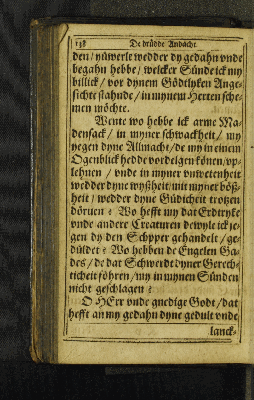 138 De drüdde Andacht.
den / yüwerle wedder dy gedahn vnde
begahn hebbe / welcker Sünde ick my
billick / vor dynem Gödtlyken Ange-
sichte stahnde / in mynem Herten sche-
men möchte.
Wente wo hebbe ick arme Ma-
densack / in myner schwackheit / my
yegen dyne Allmacht / de my in einem
Ogenblick hedde vordelgen könen / vp-
lehnen / vnde in myner vnwetenheit
wedder dyne wyßheit / mit myner böß-
heit / wedder dyne Güdicheit trotzen
dörven ? Wo hefft my dat Erdtryke
vnde andere Creaturen dewyle ick je-
gen dy den Schpper gehandelt / ge-
düldet ? Wo hebben de Engelen Ga-
des / de dat Schwerdt dyner Gerech-
ticheit föhren / my in mynen Sünden
nicht geschlagen ?
O HErr vnde gnedige Godt / dat
hefft an my gedahn dyne gedult vnde
lanck-